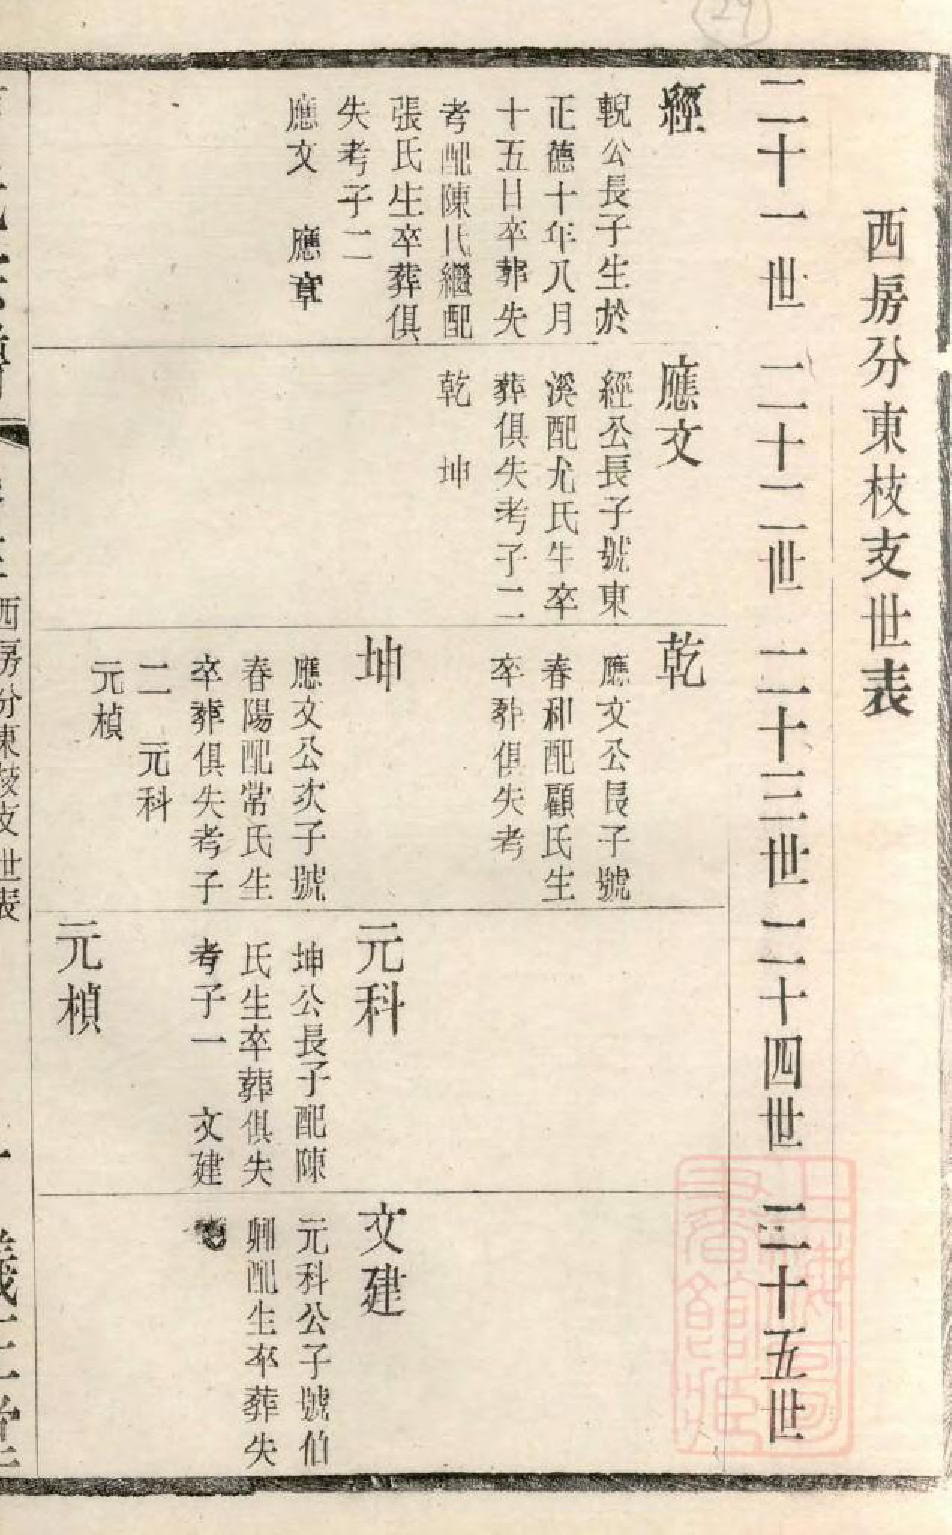 西房分東枝支世表
二十一世
二十二世
二十三世
二十四世
二十五世
經
輗公長子生於
正德十年八月
十五日卒葬失
考配陳氏繼配
張氏生卒葬俱
失考子二
應文 應章
應文
經公長子號東
溪配尤氏生卒
葬俱失考子二
乾 坤
乾
應文公長子號
春和配顧氏生
卒葬俱失考
坤
應文公次子號
春陽配常氏生
卒葬俱失考子
二 元科
元楨
元科
坤公長子配陳
氏生卒葬俱失
考子一 文建
元楨
文建
元科公子號伯
卿配生卒葬失
西房分東枝支世表